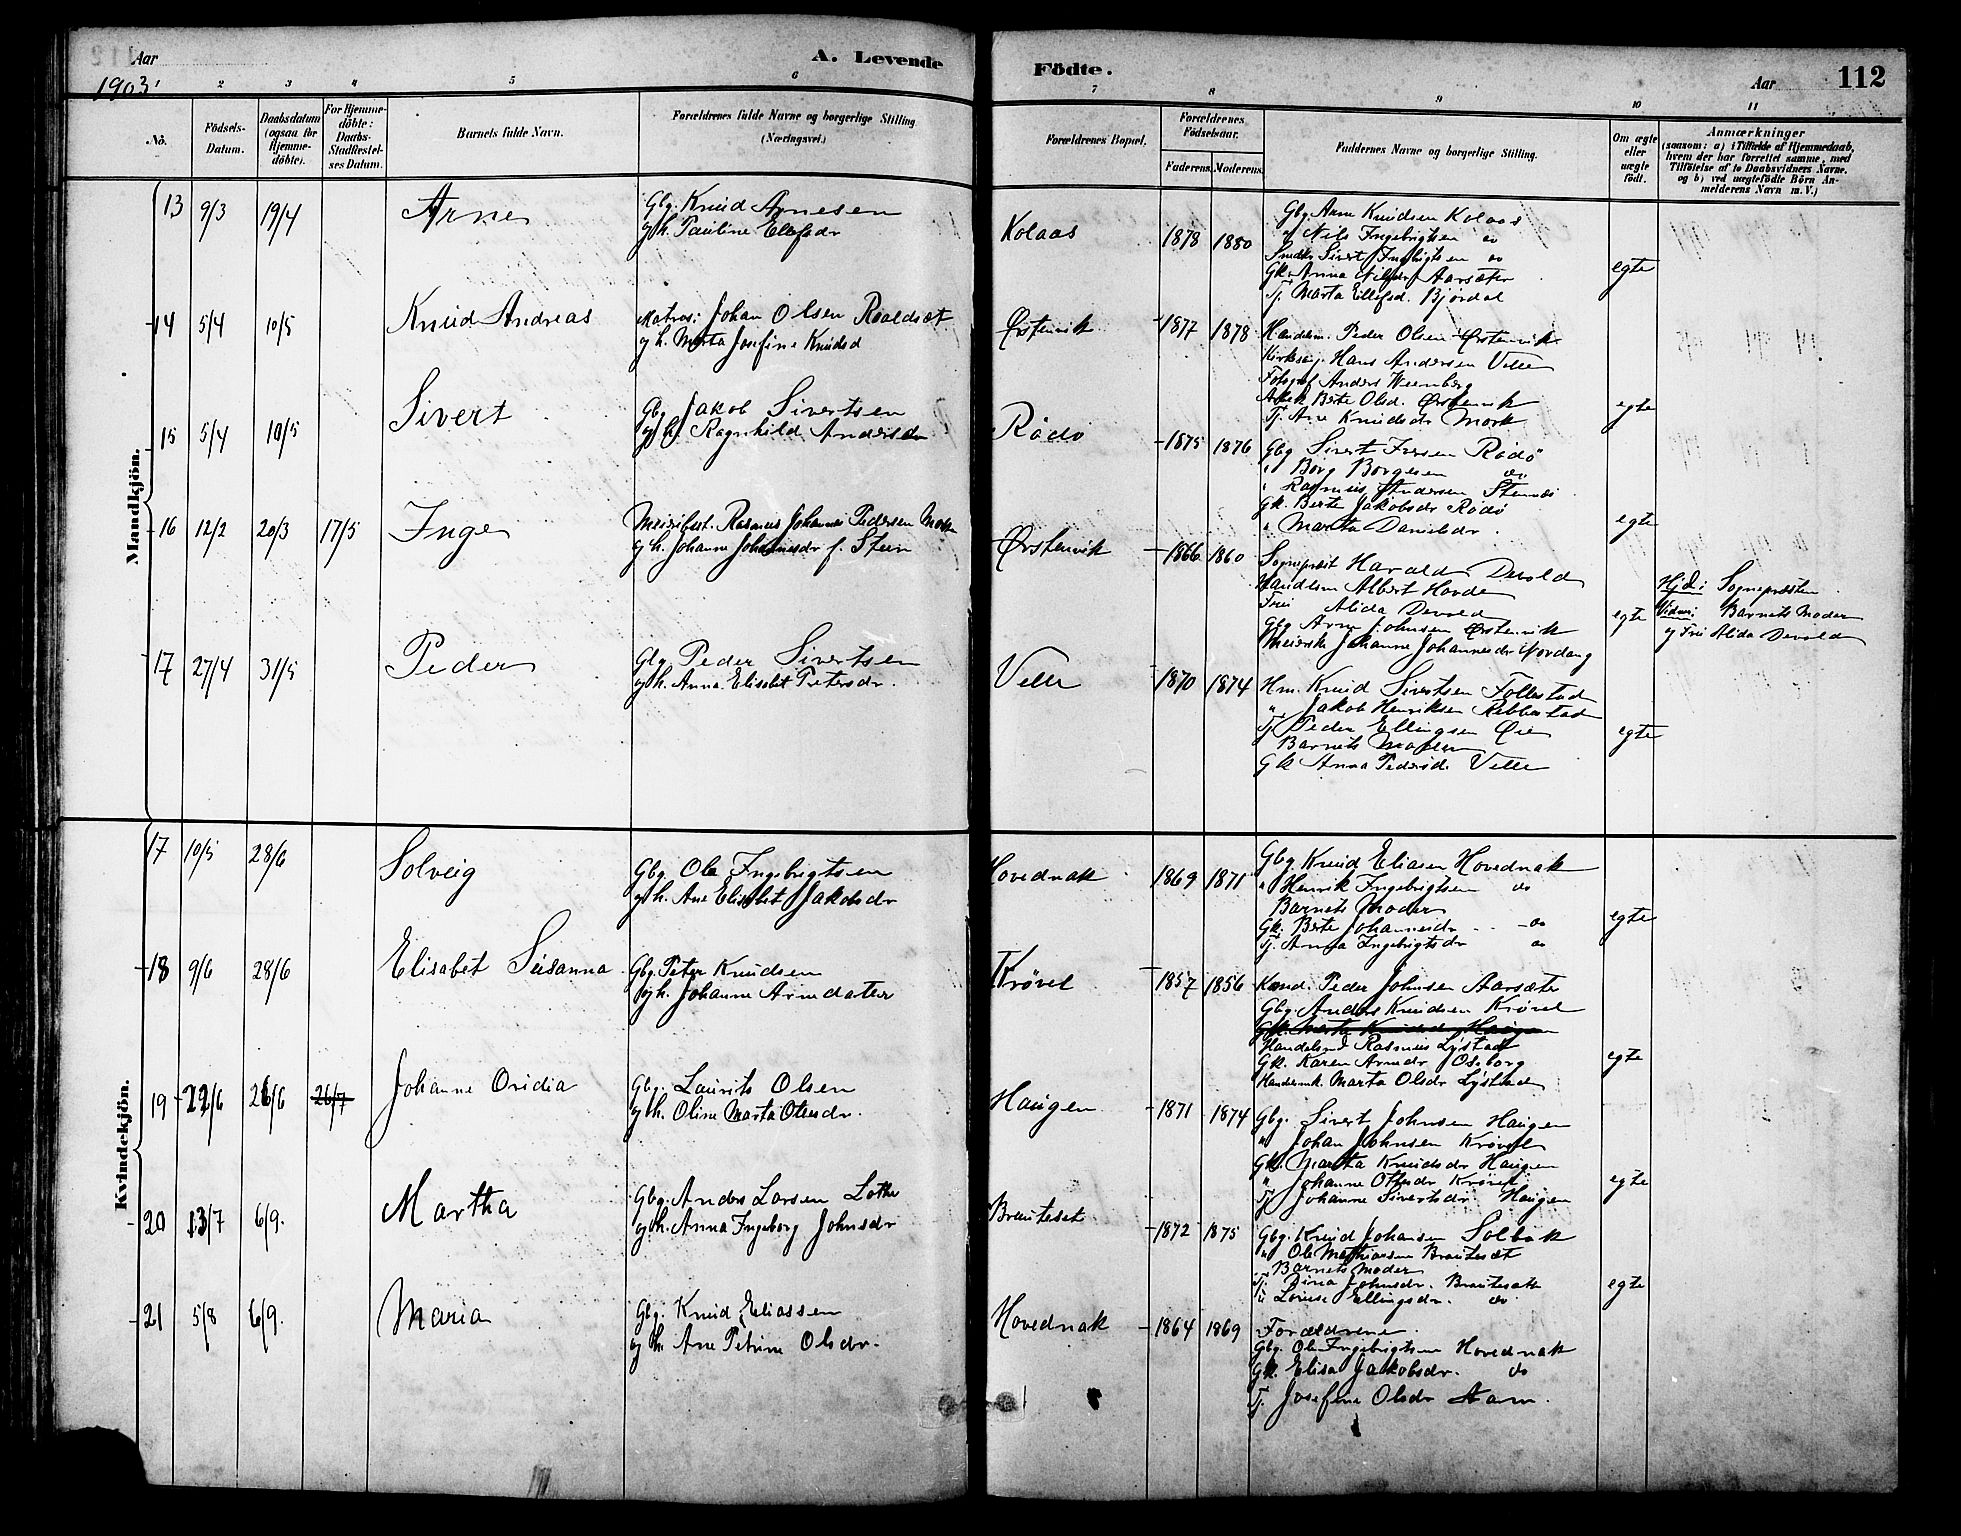 Aar
1903
A. Levende
Födte.
Aar
112
1 2 3 4 5 6 7 8 9 10 11
No.
Födsels-Datum.
Daabsdatum (ogsaa för Hjemmedöbte).
For Hjemmedöbte: Daabs-Stadfæstelses Datum.
Barnets fulde Navn.
Forældrenes fulde Navne og borgerlige Stilling (Næringsvei.)
Forældrenes Bopæl.
Forældrenes Födselsaar.
Faderens. Moderens.
Faddernes Navne og borgerlige Stilling.
Om ægte eller uægte födt.
Anmærkninger
(saasom: a) i Tilfælde af Hjemmedaab, hvem der har forrettet samme, med Tilföielse af to Daabsvidners Navne. og b) ved uægtefödte Börn Anmelderens Navn m. V.)
Mandkjön.
13 9/3 19/4 Arne
Gbg. Knud Arnesen
og h. Pauline Ellefsdr
Kolaas 1878 1880
Gbg. Arne Knudsen Kolaas
" Nils Ingebrigtsen do
Sivert Ingebrigtsen do
Gk. Anna Nilsdr Aarsæter
Tj. Marta Ellefsd. Bjørdal
egte
14 5/4 10/5 Knud Andreas
Matros: Johan Olsen Roaldset
og h. Marta Josefine Knudsd
Ørstenvik 1877 1878
Handelsm. Peder Olsen Ørstenvik
Kirkesag. Hans Andersen Velle
Fotograf Anders Weenberg
Berte Olsd. Ørstenvik
Tj. Ane Knudsdr Mork
egte
15 5/4 10/5 Sivert
Gbg Jakob Sivertsen
og h. Ragnhild Andersdr
Rödö 1875 1876
Gbg Sivert Iversen Rödö
" Borg Borgesen do
" Rasmus Andersen Stennes
Gk. Berte Jakobsdr Rödö
" Marta Danielsdr.
egte
16 12/2 20/3 17/5 Inge
Meieribest. Rasmus Johannes Pedersen Mork
og h. Johanne Johannesdr f. Stein
Ørstenvik 1866 1860
Sognepræst Harald Devold
Handelsm Albert Hovde
Frk. Alida Devold
Gbg Arne Johnsen Ørstenvik
Meierske Johanne Johannesdr Nordang
egte
Hjd: Sognepræsten
Vidner: Barnets Moder
og Frk Alida Devold
17 27/4 31/5 Peder
Gbg Peder Sivertsen
og h. Anna Elisabet Petersdr.
Velle 1870 1874
Hm. Knud Sivertsen Follestad
" Jakob Henriksen Rebbestad
Tj. Peder Ellingsen Øie
Barnets Moder
Gk Anna Pedersd. Velle
egte
Kvindekjön.
17 10/5 28/6 Solveig
Gbg. Ole Ingebrigtsen
og h. Ane Elisabet Jakobsdr
Hovednak 1869 1871
Gbg Knud Eliasen Hovednak
" Henrik Ingebrigtsen do
Barnets Moder
Gk. Berte Johannesdr. do
Tj. Anna Ingebrigtsdr do
egte
18 9/6 28/6 Elisabet Susanna
Gbg. Peter Knudsen
og h. Johanne Arnedatter
Krøvel 1857 1856
Kand. Peder Johnsen Aarsæte
Gbg. Anders Knudsen Krøvel
Handelsmd Rasmus Lystad
Gk. Karen Arnedr Oseborg
Marta Olsdr Lystad
egte
19 22/6 26/6 26/7 Johanne Oridia
Gbg. Laurits Olsen
og h. Oline Marta Ottesdr.
Haugen 1871 1874
Gbg. Sivert Johnsen Haugen
" Johan Johnsen Krøvel
Gk. Martha Knudsdr Haugen
" Johanne Ottesdr Krøvel
Tj Johanne Sivertsdr. Haugen
egte
20 13/7 6/9. Martha
Gbg. Anders Larsen Lothe
og h. Anna Ingeborg Johnsdr
Brauteset 1872 1875
Gbg. Knud Johansen Solbak
" Ole Mathiassen Brautesæt
Barnets Moder
Tj. Dina Johnsdr. Brautesæt
" Lovise Ellingsdr. do
egte
21 5/8 6/9. Maria
Gbg. Knud Eliassen
og h. Ane Petrine Olsdr.
Hovednak 1864 1869
Forældrene.
Gbg. Ole Ingebrigtsen Hovednak
Gk. Elisa Jakobsdr. do
Tj. Josefine Olsdr Aam.